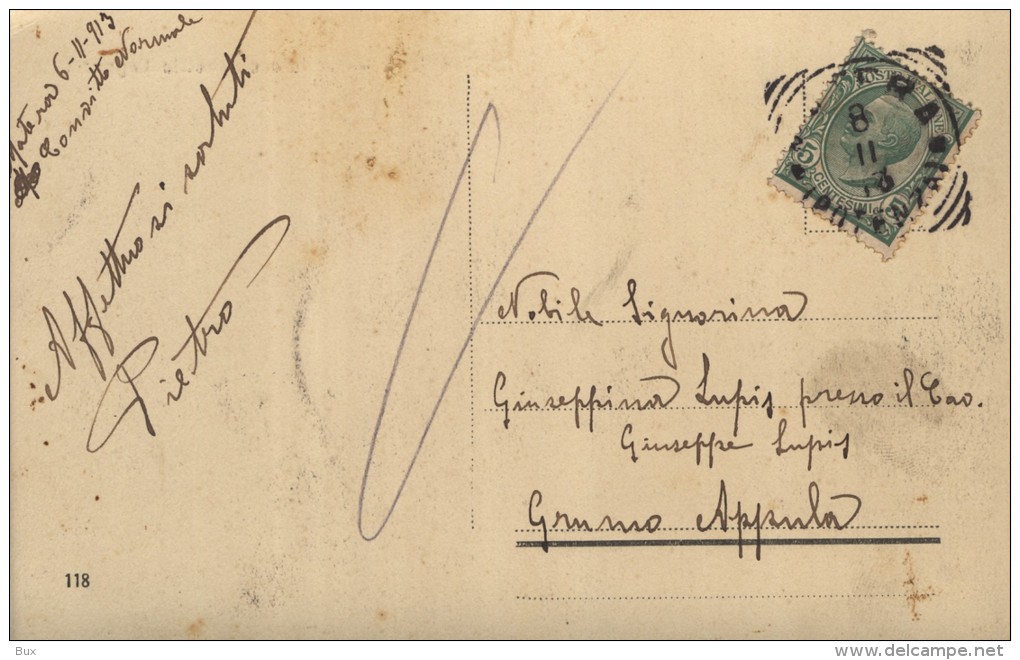 Matera 6-11-913
Convitto Normale
Affettuosi saluti
Pietro
POSTE ITALIANE
5
CENTESIMI
8
11
13
Nobile Signorina
Giuseppina Lupis presso il Cav.
Giuseppe Lupis
Grumo Appula
118
Bux
www.delcampe.net